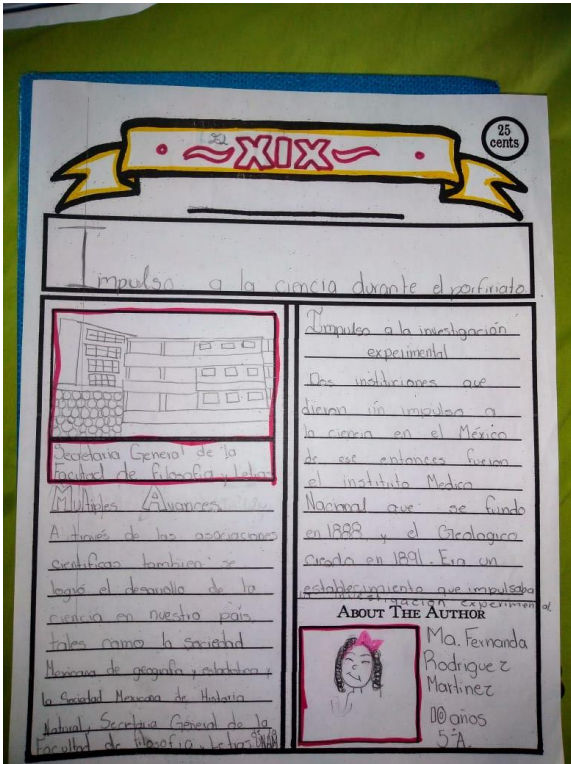 XIX
25
cents
Impulso a la ciencia durante el porfiriato
Secretaria General de la
Facultad de Filosofia y Letras
Multiples Avances
A través de las asociaciones
cientificas tambien se
logró el desarrollo de la
ciencia en nuestro pais
tales como la sociedad
Mexicana de geografia y estadistica y
la Sociedad Mexicana de Historia
Natural, Secretaria General de la
Facultad de filosofia y Letras UNAM
Impulso a la investigación
experimental
Dos instituciones que
dieron un impulso a
la ciencia en el México
de ese entonces fueron
el instituto Medico
Nacional que se fundo
en 1888 y el Geologico
creado en 1891. Era un
establecimiento que impulsaba
la investigación experimental
ABOUT THE AUTHOR
Ma. Fernanda
Rodriguez
Martinez
10 años
5°A.